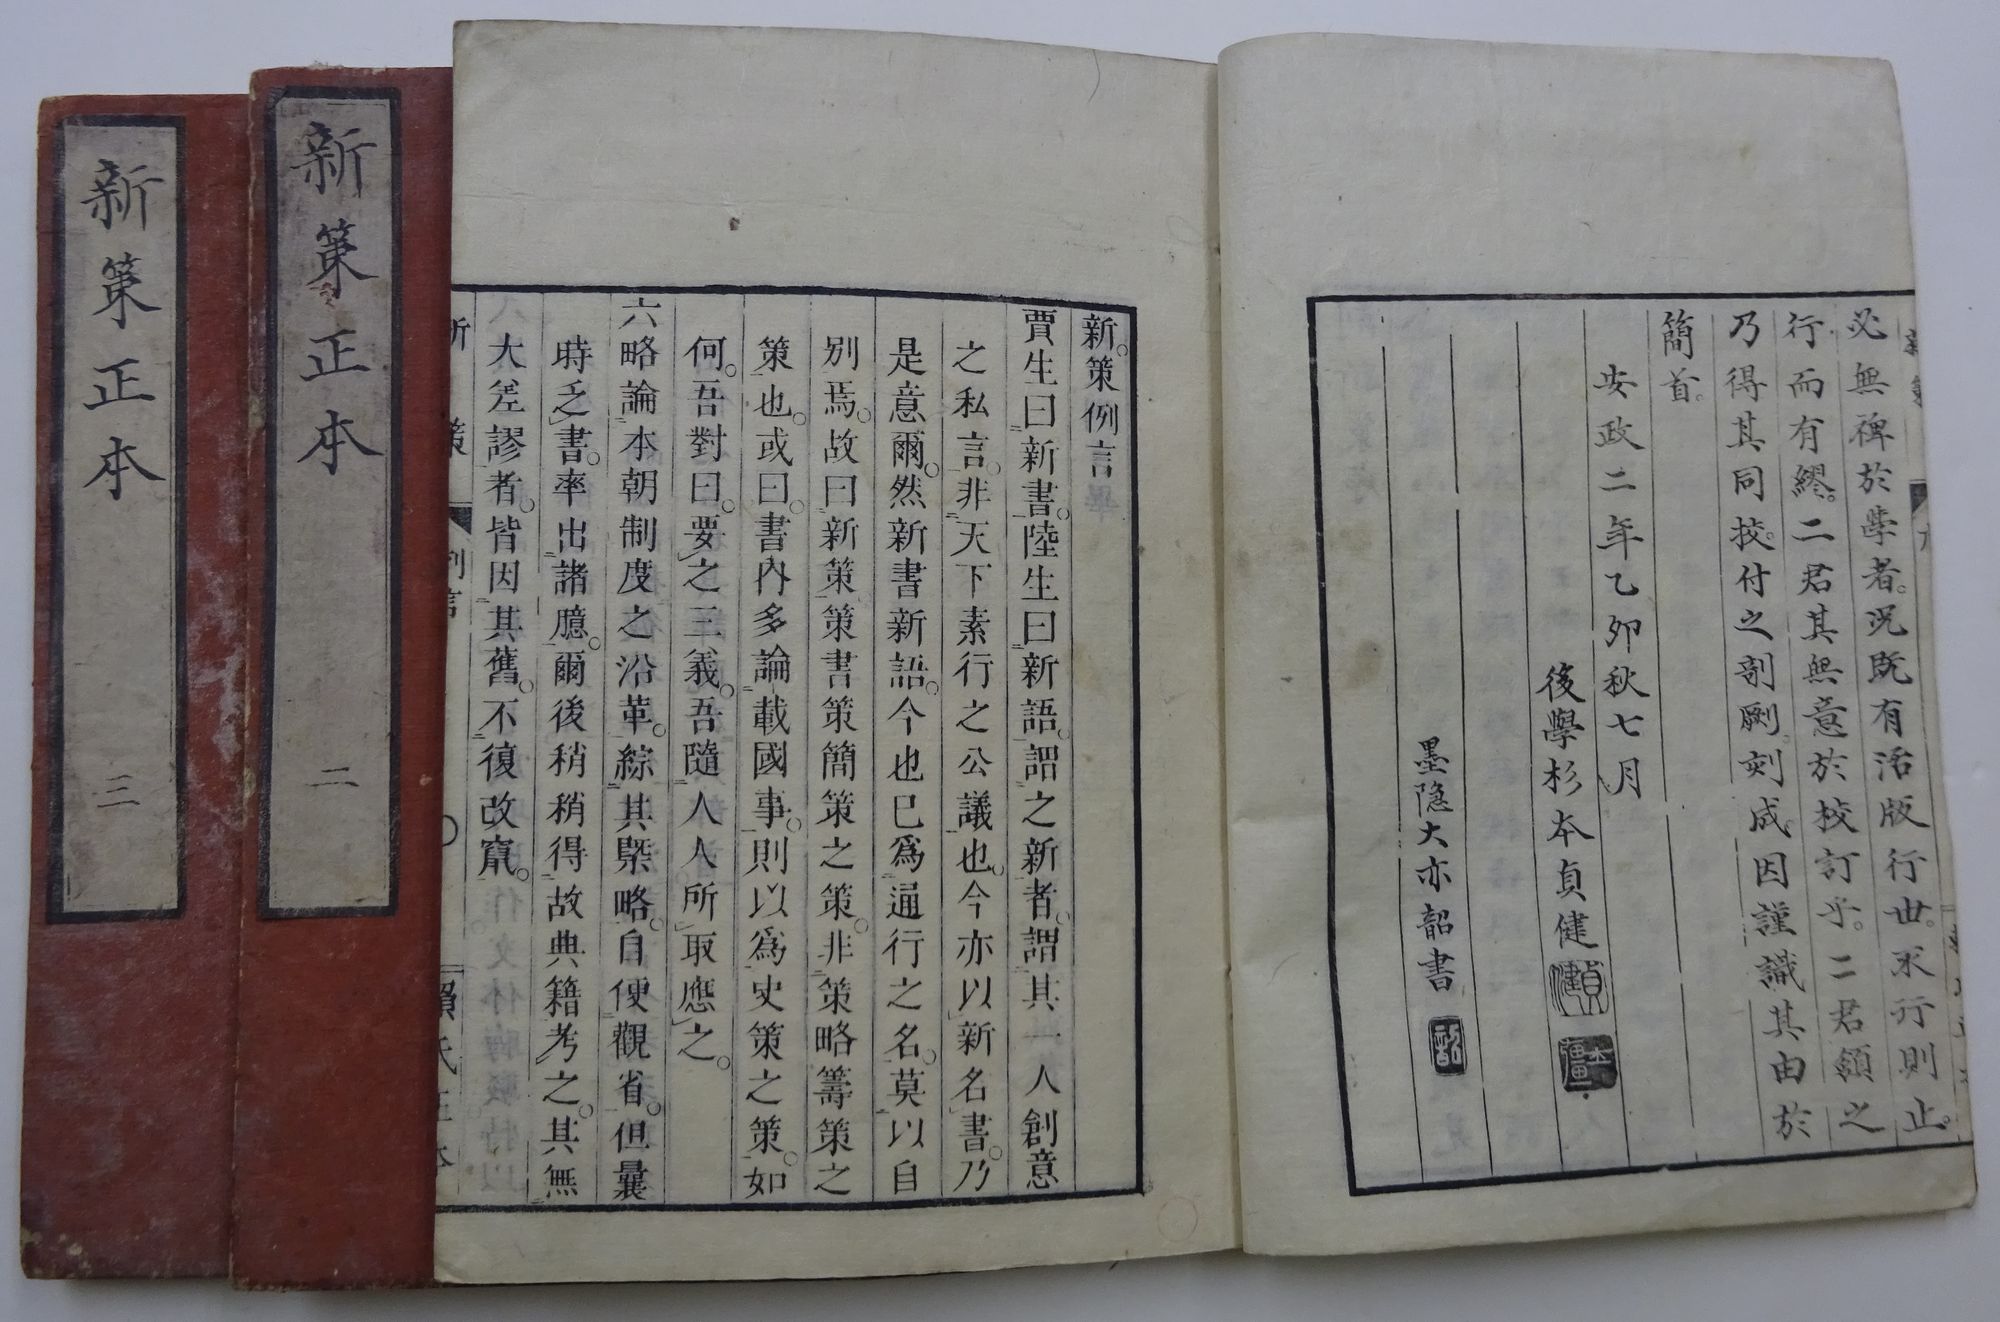 必無裨於學者況既有活版行世不行則止
行而有繆二君其無意於校訂乎二君領之
乃得其同挍付之剞劂刻成因謹識其由於
簡首
安政二年乙卯秋七月
後學杉本貞健
墨隐大亦韶書
新策例言
賈生曰新書陸生曰新語謂之新者謂其一人創意
之私言非天下素行之公議也今亦以新名書乃
是意爾然新書新語今也已爲通行之名莫以自
別焉故曰新策策書策簡策之策非策略籌策之
策也或曰書內多論載國事則以爲史策之策如
何吾對曰要之三義吾隨人人所取應之
六略論本朝制度之沿革綜其槩略自便觀省但曩
時乏書率出諸臆爾後稍稍得故典籍考之其無
大差謬者皆因其舊不復改竄
新策正本
二
新策正本
三